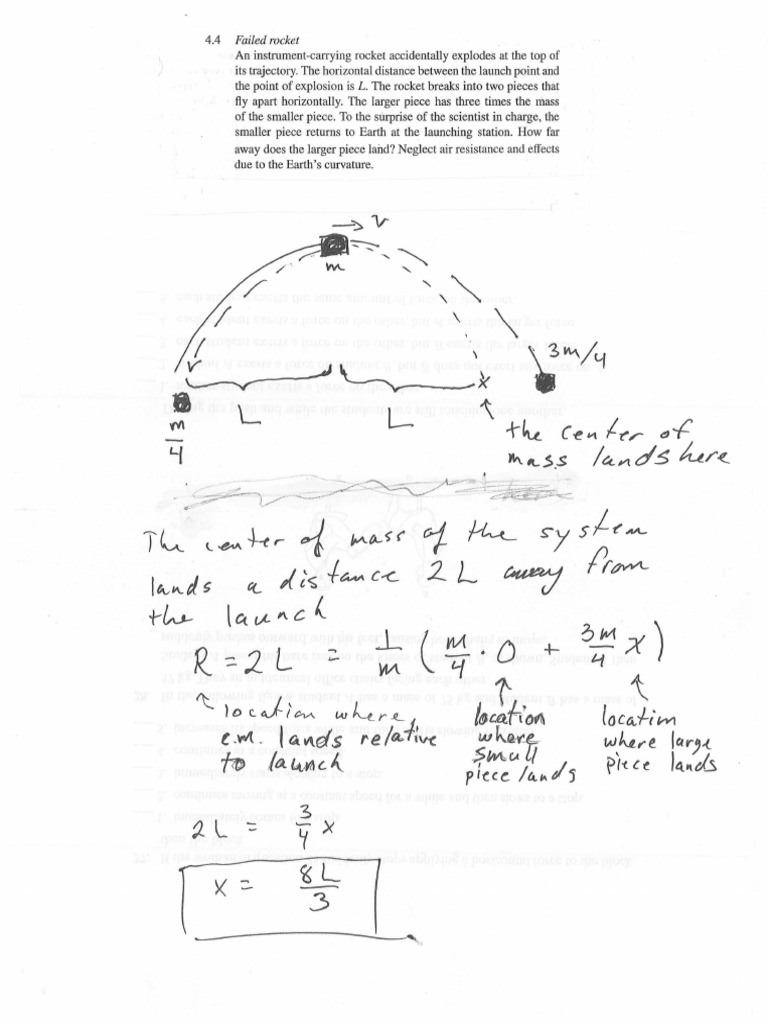 4.4 Failed rocket
An instrument-carrying rocket accidentally explodes at the top of
its trajectory. The horizontal distance between the launch point and
the point of explosion is L. The rocket breaks into two pieces that
fly apart horizontally. The larger piece has three times the mass
of the smaller piece. To the surprise of the scientist in charge, the
smaller piece returns to Earth at the launching station. How far
away does the larger piece land? Neglect air resistance and effects
due to the Earth's curvature.
→ v
m
3m/4
x
m/4
L
L
the center of
mass lands here
The center of mass of the system
lands a distance 2L away from
the launch
R = 2L = 1/m (m/4 · 0 + 3m/4 x)
location where
c.m. lands relative
to launch
location
where
small
piece lands
location
where large
piece lands
2L = 3/4 x
x = 8L/3